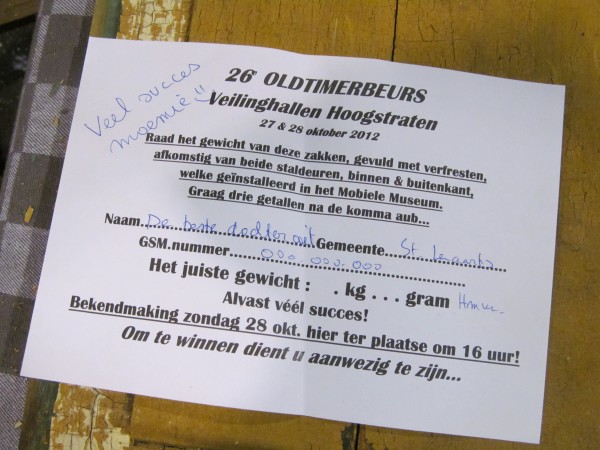 Veel succes
moemie!!
26e OLDTIMERBEURS
Veilinghallen Hoogstraten
27 & 28 oktober 2012
Raad het gewicht van deze zakken, gevuld met verfresten,
afkomstig van beide staldeuren, binnen & buitenkant,
welke geïnstalleerd in het Mobiele Museum.
Graag drie getallen na de komma aub...
Naam..De beste dochter uit..Gemeente..St
GSM.nummer......000.000.000......
Het juiste gewicht : . kg . . . gram
Alvast véél succes!
Bekendmaking zondag 28 okt. hier ter plaatse om 16 uur!
Om te winnen dient u aanwezig te zijn...